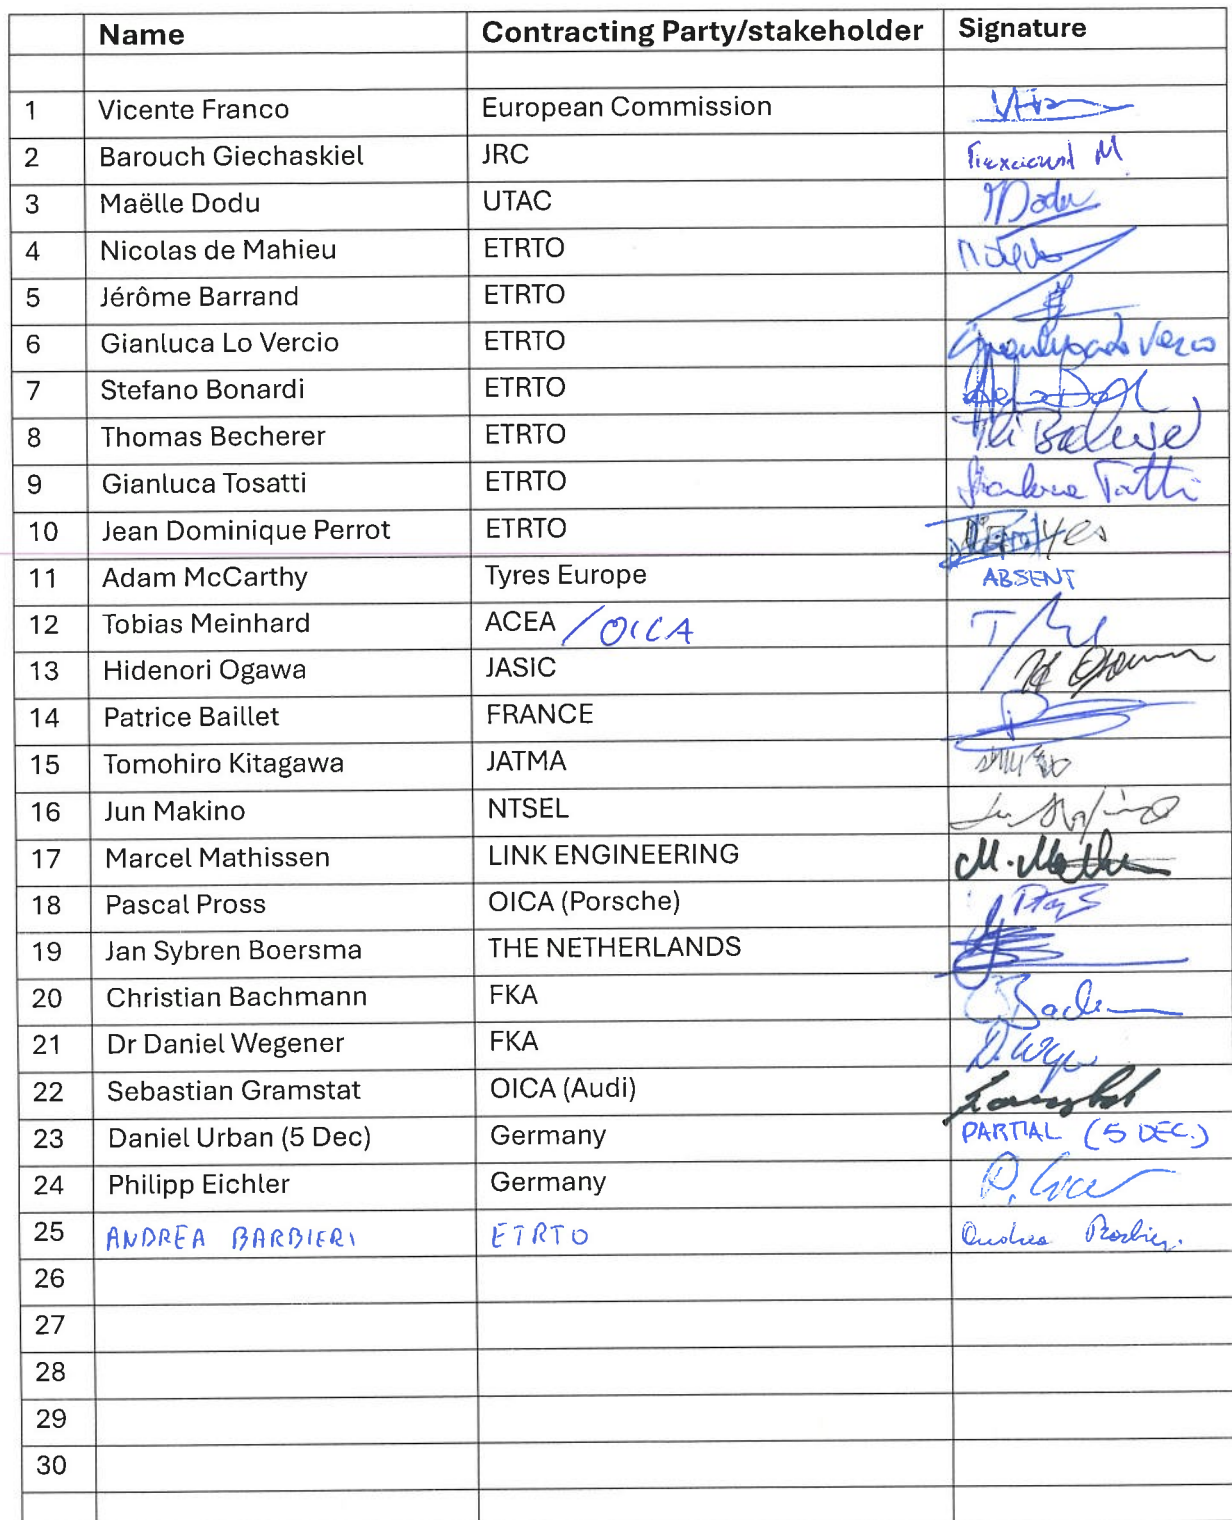 Name Contracting Party/stakeholder Signature
1 Vicente Franco European Commission
2 Barouch Giechaskiel JRC
3 Maëlle Dodu UTAC Dodu
4 Nicolas de Mahieu ETRTO
5 Jérôme Barrand ETRTO
6 Gianluca Lo Vercio ETRTO
7 Stefano Bonardi ETRTO
8 Thomas Becherer ETRTO
9 Gianluca Tosatti ETRTO
10 Jean Dominique Perrot ETRTO
11 Adam McCarthy Tyres Europe ABSENT
12 Tobias Meinhard ACEA / OICA
13 Hidenori Ogawa JASIC
14 Patrice Baillet FRANCE
15 Tomohiro Kitagawa JATMA
16 Jun Makino NTSEL
17 Marcel Mathissen LINK ENGINEERING
18 Pascal Pross OICA (Porsche)
19 Jan Sybren Boersma THE NETHERLANDS
20 Christian Bachmann FKA
21 Dr Daniel Wegener FKA
22 Sebastian Gramstat OICA (Audi)
23 Daniel Urban (5 Dec) Germany PARTIAL (5 DEC.)
24 Philipp Eichler Germany
25 ANDREA BARBIERI ETRTO
26
27
28
29
30